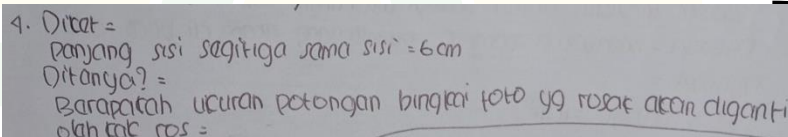 4. Dikat =
Panjang sisi sagitiga sama sisi = 6 cm
Ditanya? =
Barapakah ukuran potongan bingkai foto yg rosak akan diganti
olah kak ros =